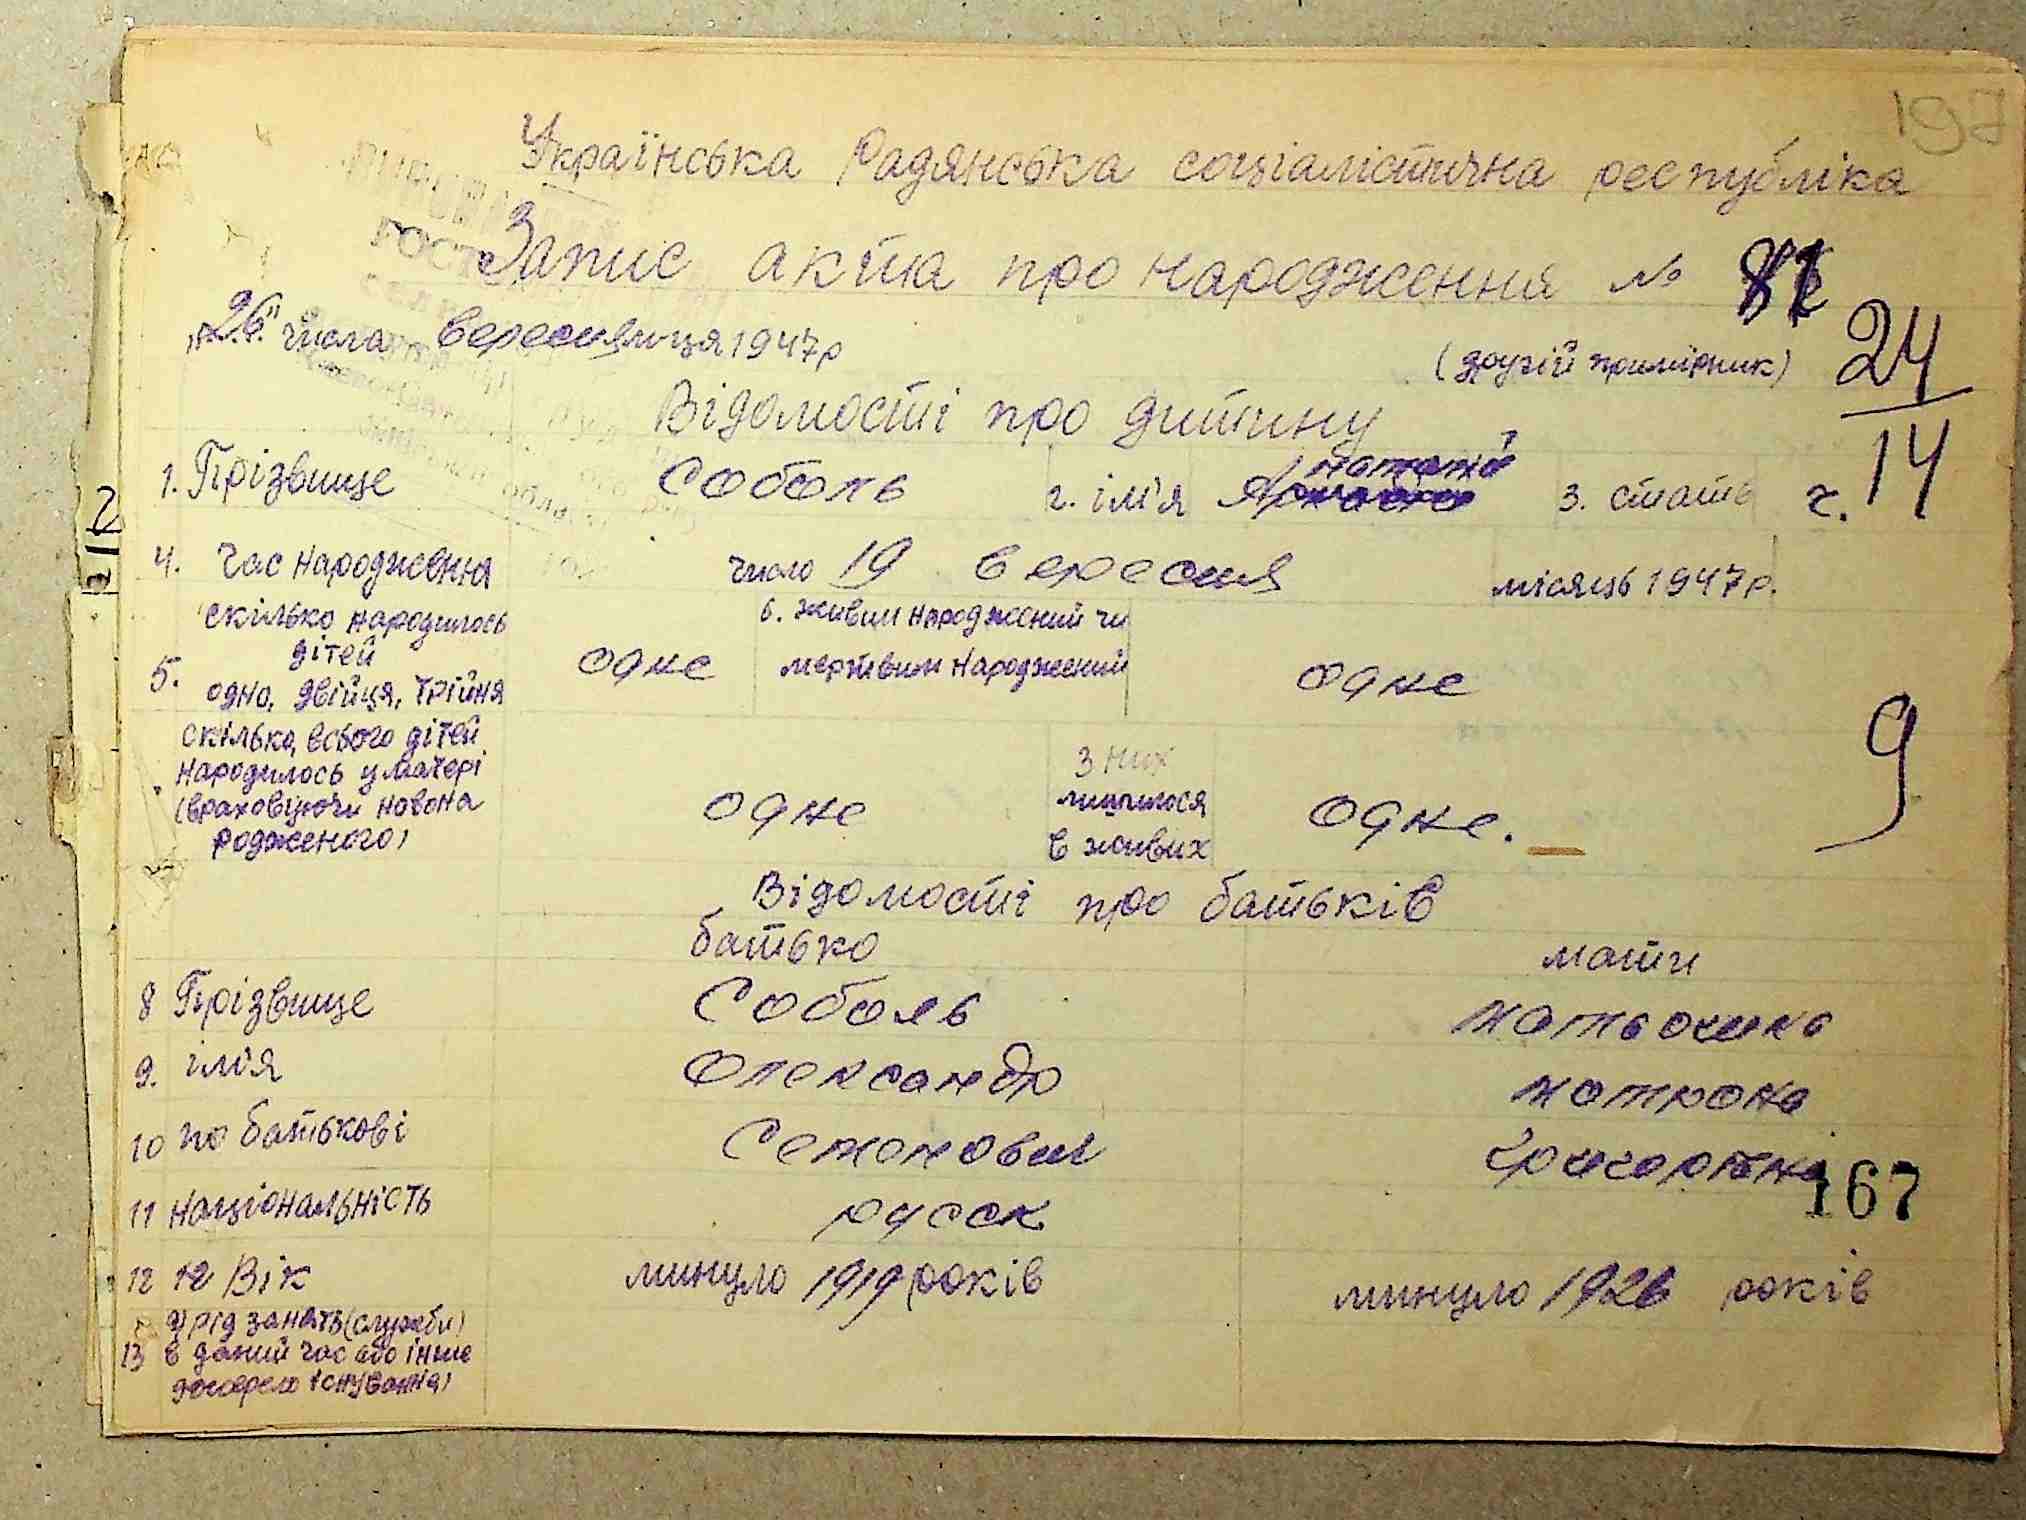 197
Українська Радянська соціалістична республіка
Запис акта про народження №
"26" числа вересня м-ця 1947р
(другій примірник)
24
14
Відомості про дитину
1. Прізвище Соболь 2. ім'я 3. стать ч.
4. Час народження число 19 вересня місяць 1947р.
скілько народилось дітей
5. одно, двійця, трійня одне
6. живим народжений чи мертвим народжений одне
скілько всього дітей народилось у матері (враховуючи новонародженого) одне
з них лишилося в живих одне.
9
Відомості про батьків
батько мати
8 Прізвище Соболь
9. ім'я Олександр Мотрона
10 по батькові Семонович
167
11 Національність русск
12 12 Вік минуло 1919 років минуло 1926 років
13 рід занять (служби)
в даний час або інше
джерело існування)